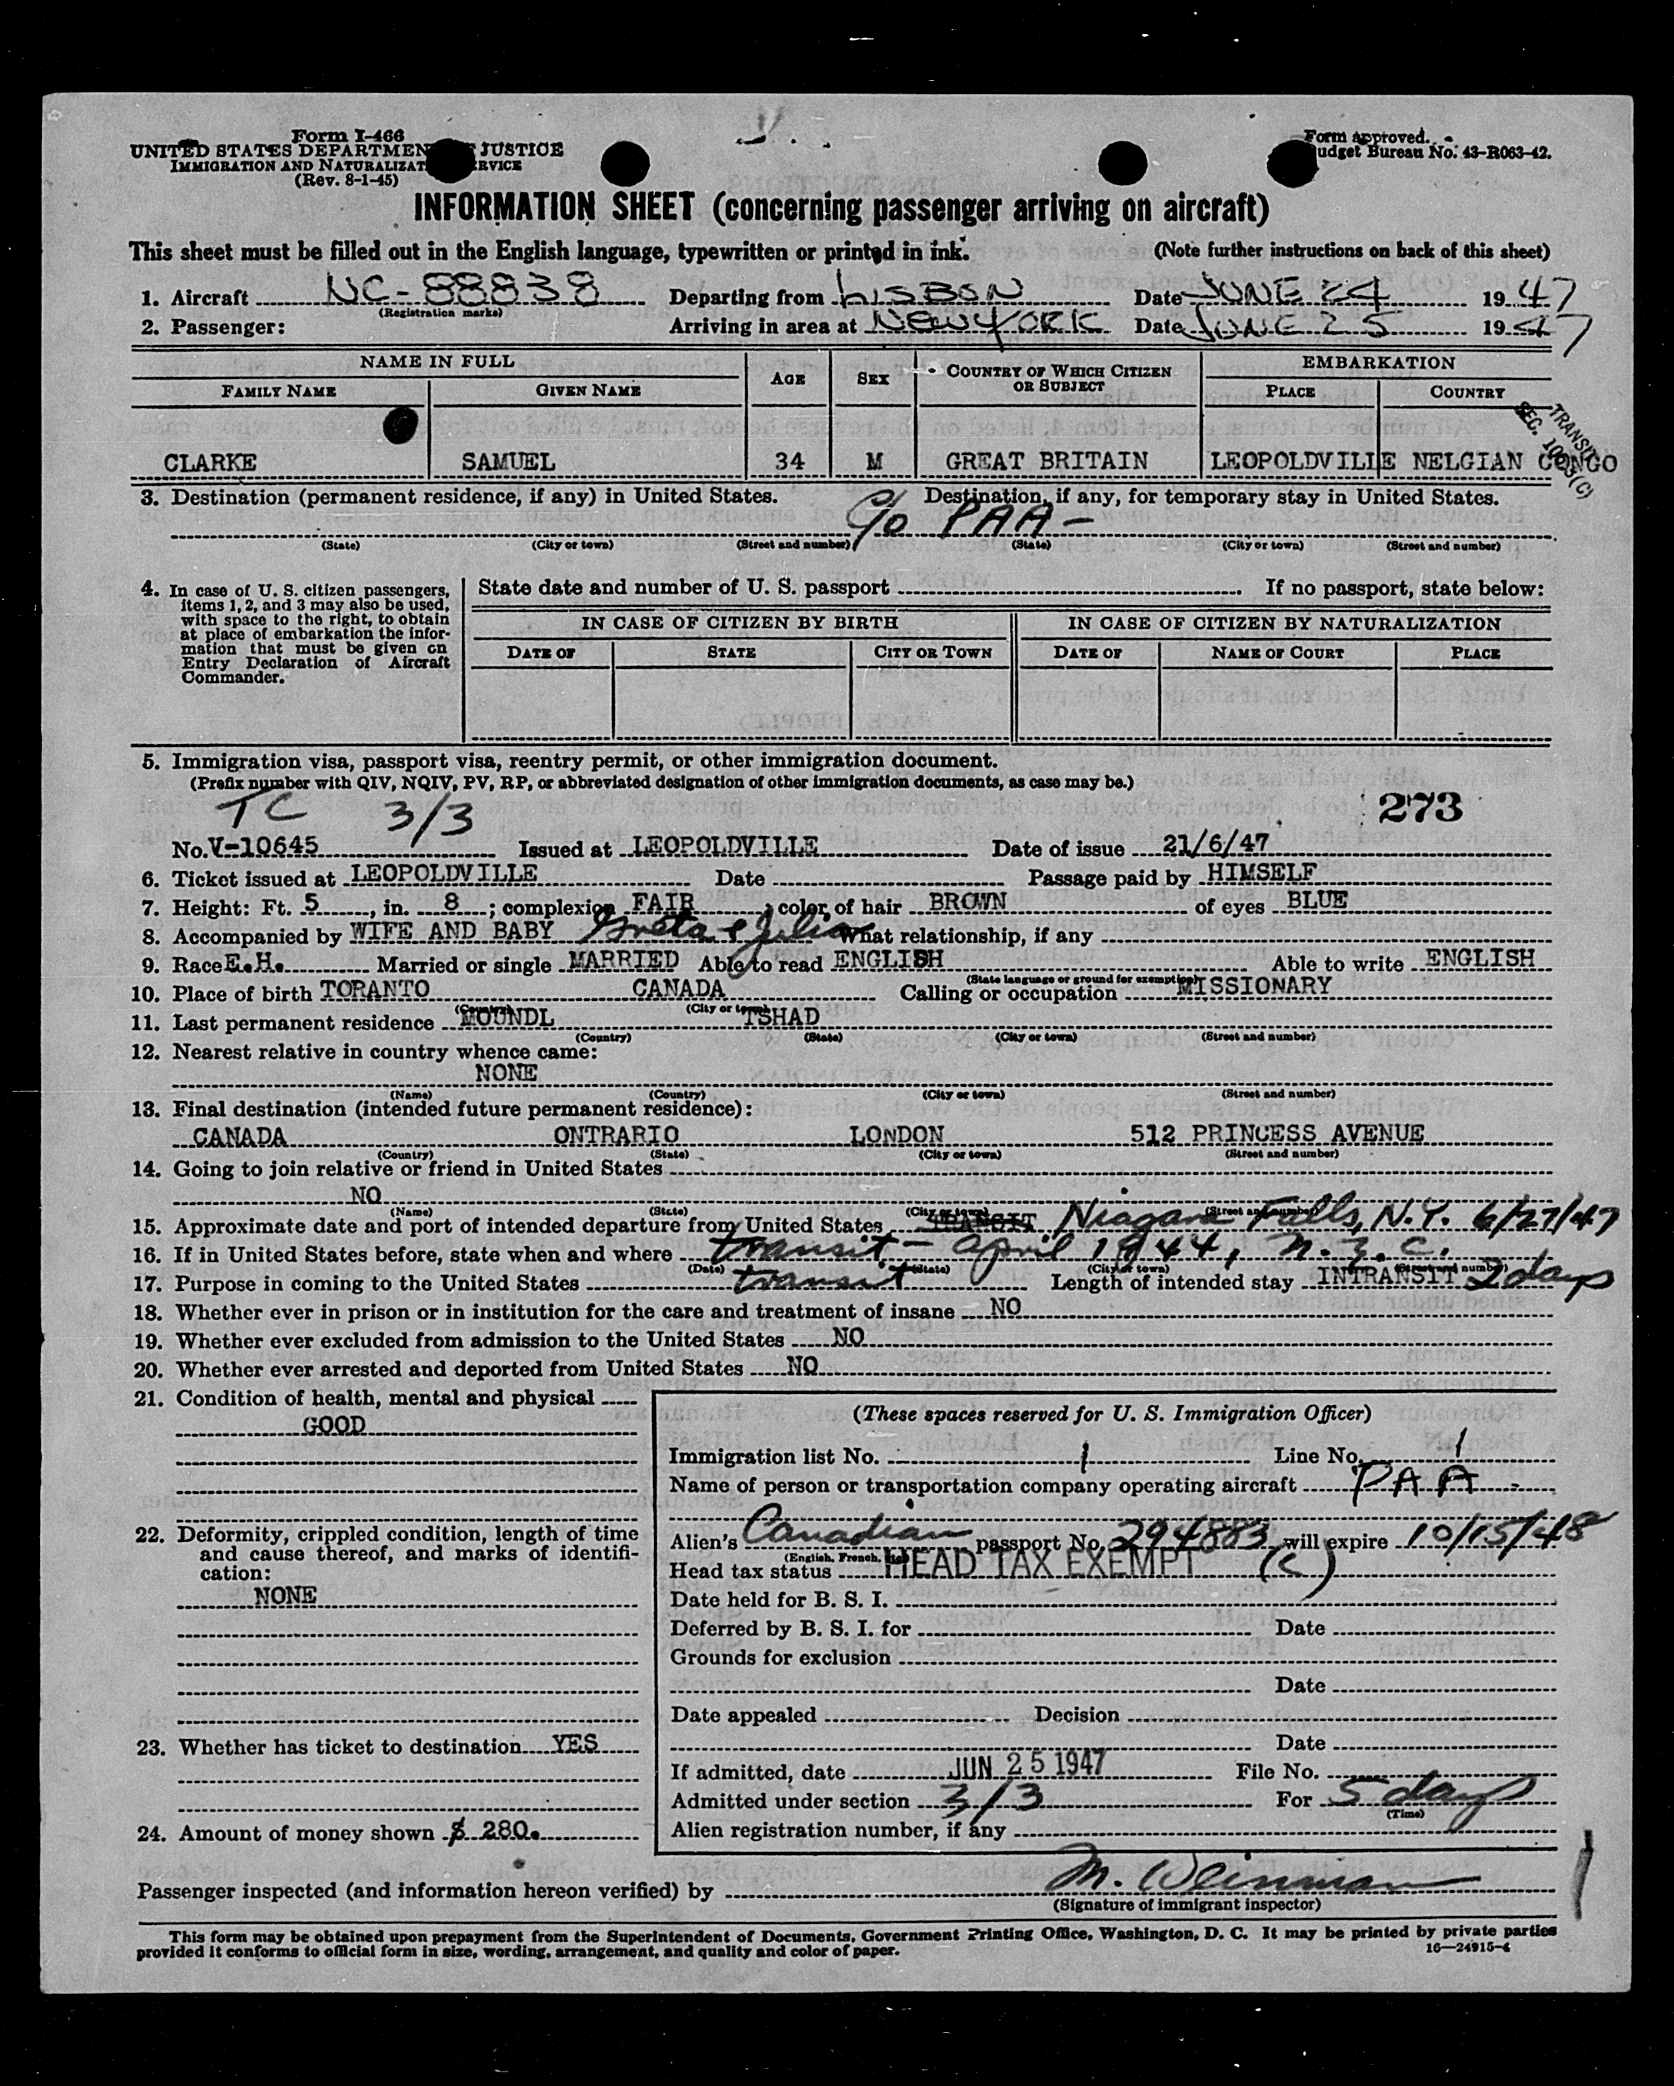 Form I-466
UNITED STATES DEPARTMENT JUSTICE
IMMIGRATION AND NATURALIZAT RVICE
(Rev. 8-1-45)
Form approved.
udget Bureau No. 43-R063-42.
INFORMATION SHEET (concerning passenger arriving on aircraft)
This sheet must be filled out in the English language, typewritten or printed in ink. (Note further instructions on back of this sheet)
1. Aircraft NC-88838 Departing from LISBON Date JUNE 24 1947
(Registration marks)
2. Passenger: Arriving in area at NEW YORK Date JUNE 25 1947
NAME IN FULL AGE SEX COUNTRY OF WHICH CITIZEN OR SUBJECT EMBARKATION
FAMILY NAME GIVEN NAME PLACE COUNTRY
TRANSIT
SEC.
CLARKE SAMUEL 34 M GREAT BRITAIN LEOPOLDVILLE NELGIAN CONGO
3. Destination (permanent residence, if any) in United States. Destination, if any, for temporary stay in United States.
c/o PAA-
(State) (City or town) (Street and number) (State) (City or town) (Street and number)
4. In case of U. S. citizen passengers, items 1, 2, and 3 may also be used, with space to the right, to obtain at place of embarkation the information that must be given on Entry Declaration of Aircraft Commander.
State date and number of U. S. passport If no passport, state below:
IN CASE OF CITIZEN BY BIRTH IN CASE OF CITIZEN BY NATURALIZATION
DATE OF STATE CITY OR TOWN DATE OF NAME OF COURT PLACE
5. Immigration visa, passport visa, reentry permit, or other immigration document.
(Prefix number with QIV, NQIV, PV, RP, or abbreviated designation of other immigration documents, as case may be.)
TC 3/3 273
No. V-10645 Issued at LEOPOLDVILLE Date of issue 21/6/47
6. Ticket issued at LEOPOLDVILLE Date Passage paid by HIMSELF
7. Height: Ft. 5, in. 8; complexion FAIR; color of hair BROWN of eyes BLUE
8. Accompanied by WIFE AND BABY Greta & Julia What relationship, if any
9. Race E.H. Married or single MARRIED Able to read ENGLISH Able to write ENGLISH
(State language or ground for exemption)
10. Place of birth TORANTO CANADA Calling or occupation MISSIONARY
(Country) (City or town)
11. Last permanent residence MOUNDL TSHAD
(Country) (State) (City or town) (Street and number)
12. Nearest relative in country whence came:
NONE
(Name) (Country) (City or town) (Street and number)
13. Final destination (intended future permanent residence):
CANADA ONTRARIO LONDON 512 PRINCESS AVENUE
(Country) (State) (City or town) (Street and number)
14. Going to join relative or friend in United States
NO
(Name) (State) (City or town) (Street and number)
15. Approximate date and port of intended departure from United States TRANSIT Niagara Falls, N.Y. 6/27/47
16. If in United States before, state when and where transit - April 1944, N.Y.C.
(Date) (State) (City or town) (Street and number)
17. Purpose in coming to the United States transit Length of intended stay INTRANSIT 2 days
18. Whether ever in prison or in institution for the care and treatment of insane NO
19. Whether ever excluded from admission to the United States NO
20. Whether ever arrested and deported from United States NO
21. Condition of health, mental and physical
GOOD
22. Deformity, crippled condition, length of time and cause thereof, and marks of identification:
NONE
23. Whether has ticket to destination YES
24. Amount of money shown $ 280.
(These spaces reserved for U. S. Immigration Officer)
Immigration list No. 1 Line No. 1
Name of person or transportation company operating aircraft PAA
Alien's Canadian passport No. 294883 will expire 10/15/48
(English, French, etc.)
Head tax status HEAD TAX EXEMPT (c)
Date held for B. S. I.
Deferred by B. S. I. for Date
Grounds for exclusion
Date
Date appealed Decision
Date
If admitted, date JUN 25 1947 File No.
Admitted under section 3/3 For 5 days
(Time)
Alien registration number, if any
Passenger inspected (and information hereon verified) by M. Weinman
(Signature of immigrant inspector)
This form may be obtained upon prepayment from the Superintendent of Documents, Government Printing Office, Washington, D. C. It may be printed by private parties
provided it conforms to official form in size, wording, arrangement, and quality and color of paper. 16—24915-4